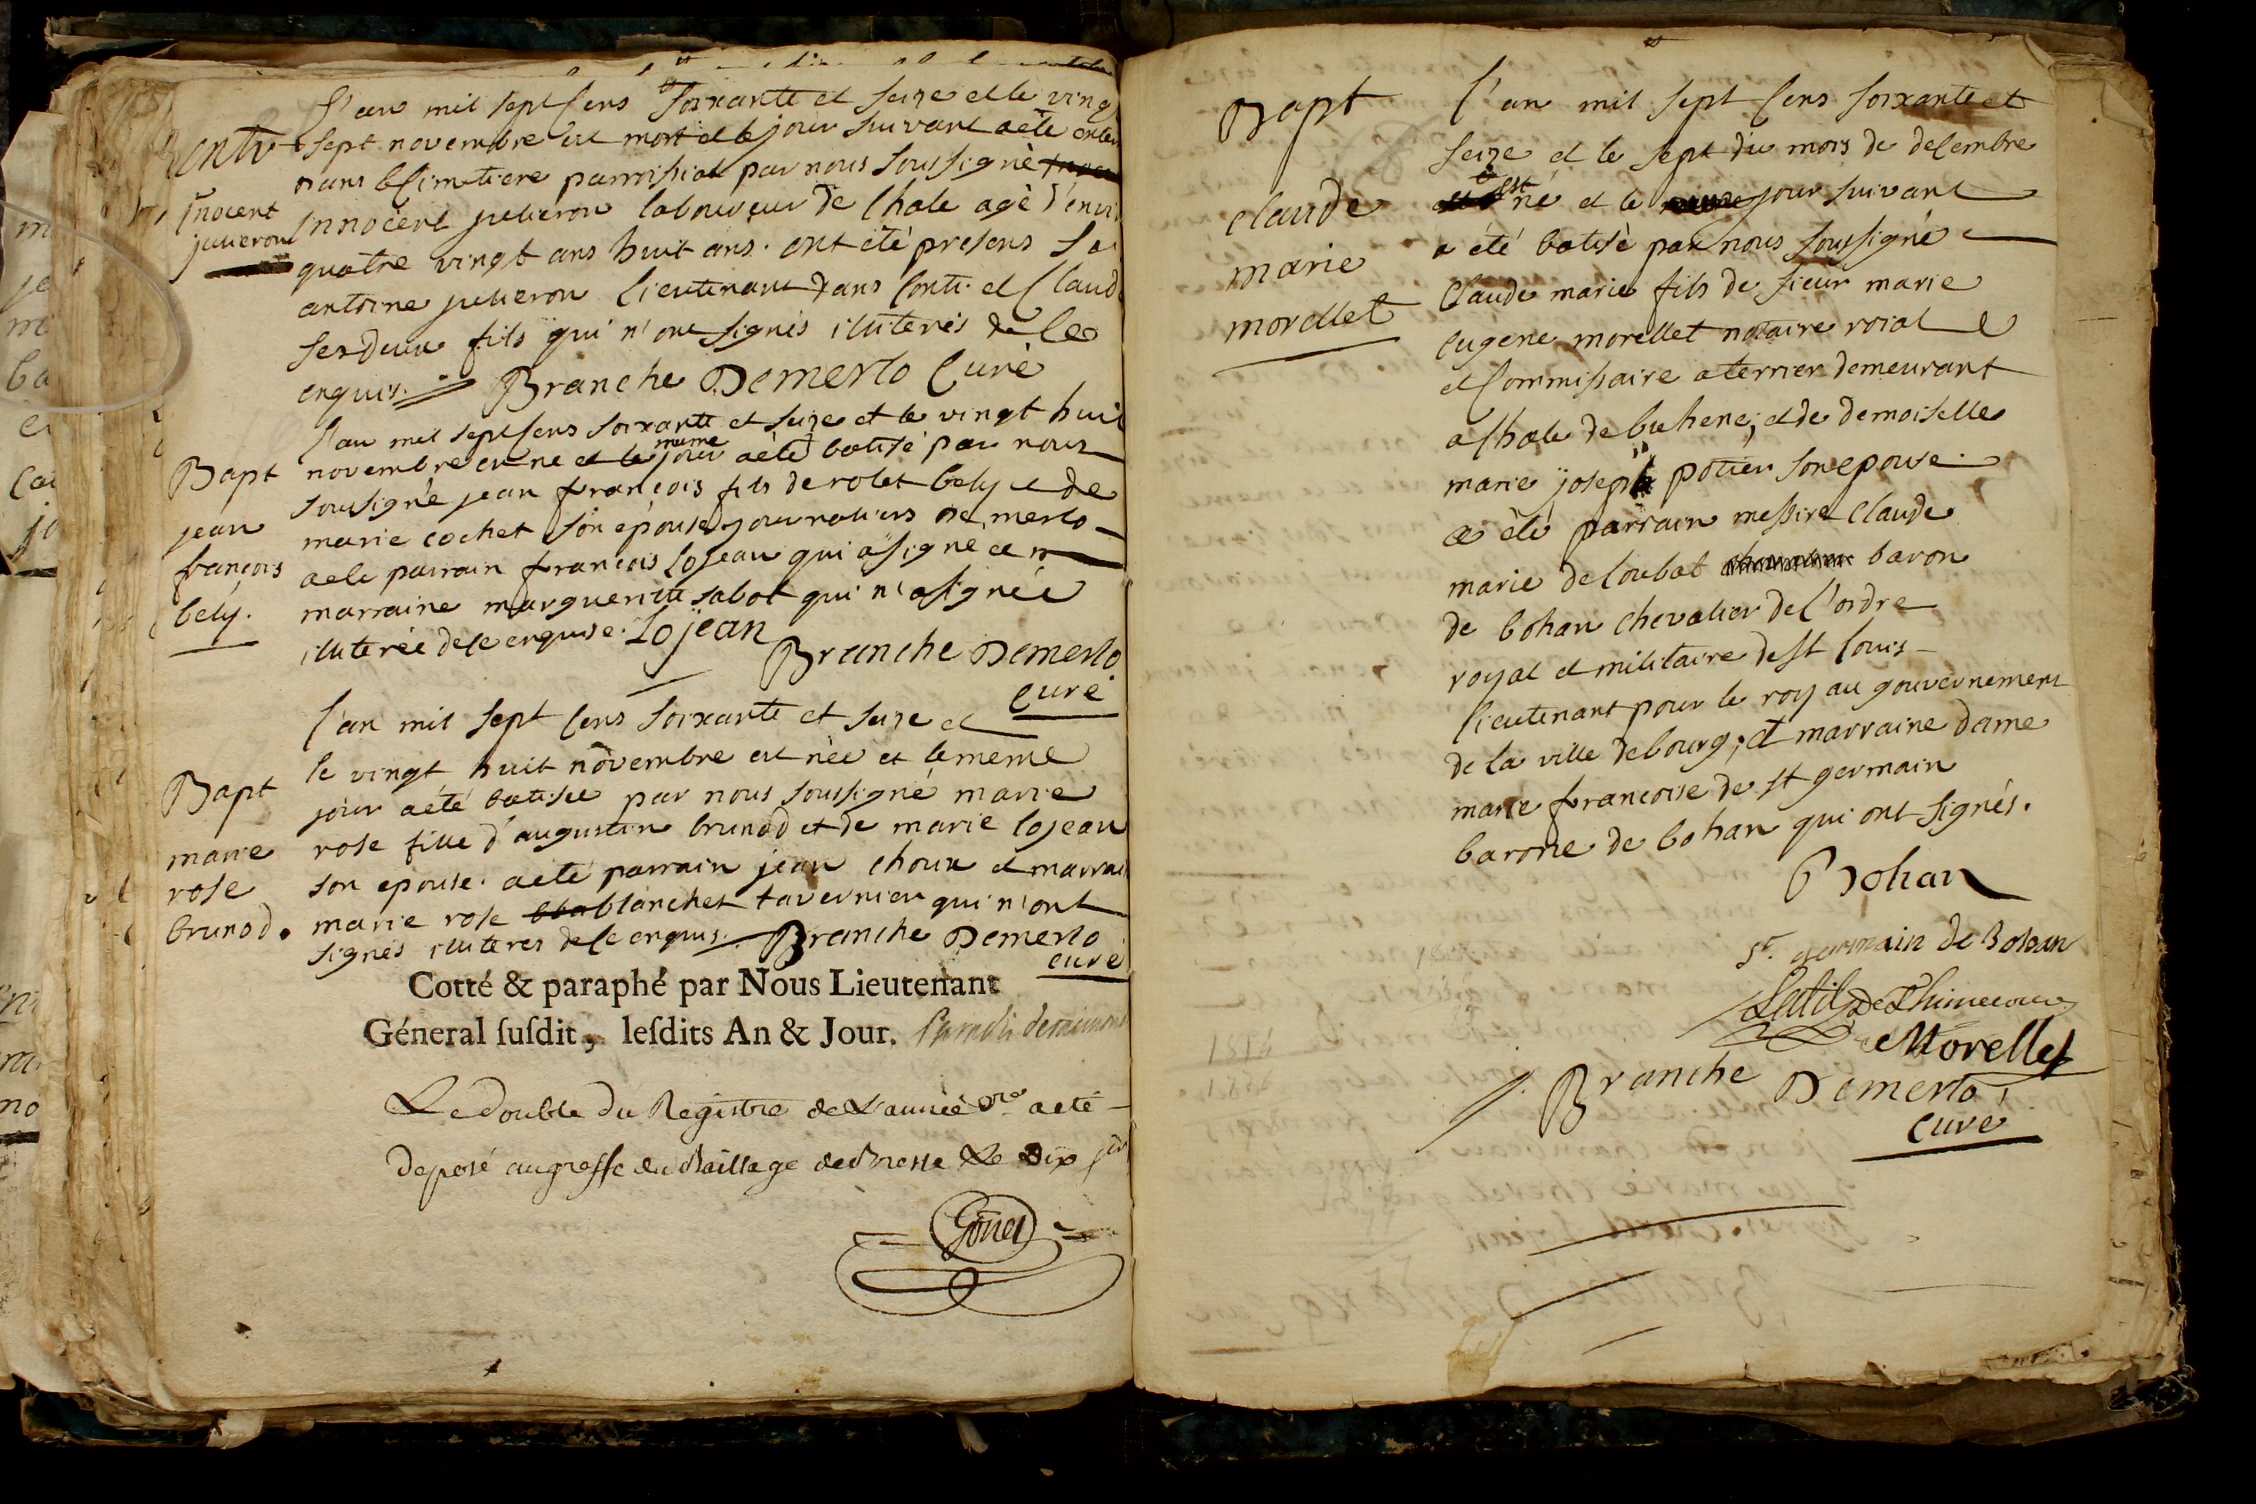 L'an mil sept cens soixante et seize et le ving
sept novembre est mort et le jour suivant a été enter
dans le cimetiere parroissial par nous soussigné
Innocent julieron laboureur de Chale agé d'envi
quatre vingt ans huit ans. ont été presens
antoine julieron lieutenant dans Conti et Claude
ses deux fils qui n'ont signés illiterés de ce
enquis. Branche Demerlo Curé
Innocent
julieron
l'an mil sept cens soixante et seize et le vingt huit
novembre est né et le meme jour a été batisé par nous
soussigné jean françois fils de rolet bely et de
marie cochet son épouse journaliers de merlo
a été parrain francois Lojean qui a signé et
marraine marguerite sabot qui n'a signée
illiterée de ce enquise. Lojean
Branche Demerlo
curé
Bapt
jean
francois
bely.
l'an mil sept cens soixante et seize et
le vingt huit novembre est née et le meme
jour a été batisée par nous soussigné marie
rose fille d'augustin brunod et de marie lojean
son epouse. a été parrain jean choux et marrai
marie rose blanchet tavernier qui n'ont
signés illiteres de ce enquis. Branche Demerlo
curé
Bapt
marie
rose
brunod.
Cotté & paraphé par Nous Lieutenant
Géneral susdit, lesdits An & Jour.
Le double du Registre de L'année dre a eté
deposé au greffe du Baillage de Bresse Le dix
Bapt
claude
marie
morellet
l'an mil sept cens soixante et
seize et le sept du mois de decembre
est né et le jour suivant
a été batisé par nous soussigné
Claude marie fils de sieur marie
eugene morellet notaire roial
et Commissaire a terrier demeurant
a Chale de buhene; et de demoiselle
marie joseph potier son epouse.
a été parrain messire Claude
marie de loubat baron
de bohan chevalier de l'ordre
royal et militaire de st louis
lieutenant pour le roy au gouvernement
de la ville de bourg; et marraine dame
marie francoise de st germain
barone de bohan qui ont signés.
Bohan
St. germain de Bohan
Morellet
Branche Demerlo
Curé